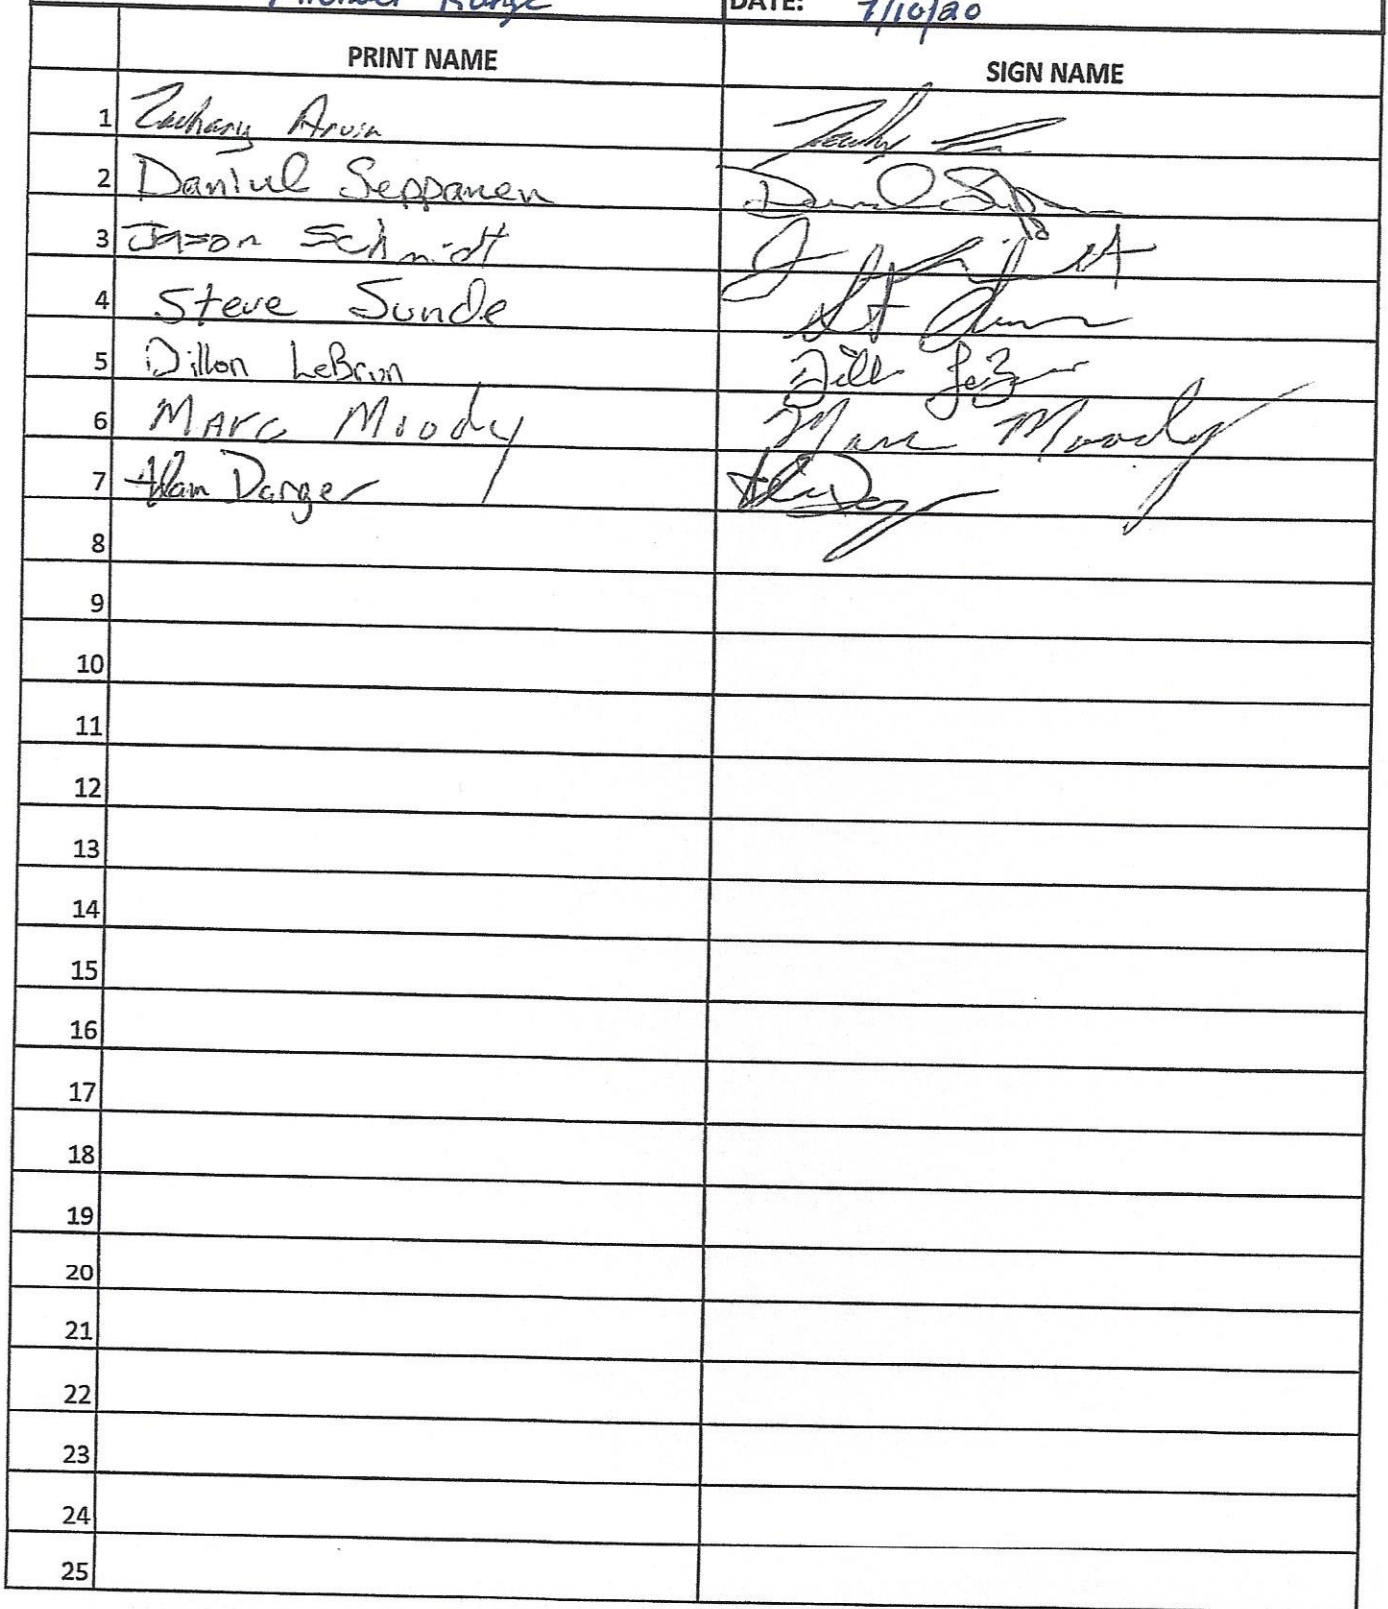 DATE: 7/10/20
PRINT NAME SIGN NAME
1 Zachary Arvin
2 Daniel Seppanen
3 Jason Schmidt
4 Steve Sunde
5 Dillon LeBrun
6 Marc Moody Marc Moody
7 Alan Darger
8
9
10
11
12
13
14
15
16
17
18
19
20
21
22
23
24
25